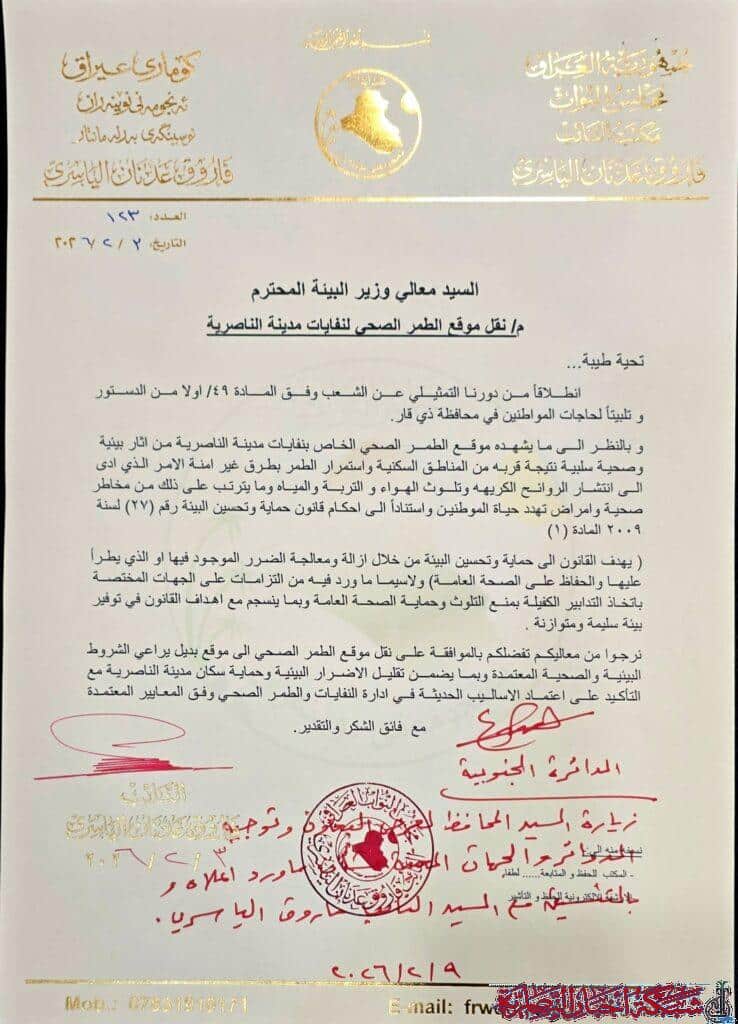 بسم الله الرحمن الرحيم
جمهورية العراق
مجلس النواب
مكتب النائب
فاروق عدنان الياسري
كۆماری عیراق
ئەنجومەنی نوێنەران
نوسینگەی پەرلەمانتار
فاروق عدنان الياسري
العدد: ١٢٣
التاريخ: ٢ / ٢ / ٢٠٢٦
السيد معالي وزير البيئة المحترم
م/ نقل موقع الطمر الصحي لنفايات مدينة الناصرية
تحية طيبة...
انطلاقاً من دورنا التمثيلي عن الشعب وفق المادة ٤٩/ اولا من الدستور
و تلبيتاً لحاجات المواطنين في محافظة ذي قار.
و بالنظر الى ما يشهده موقع الطمر الصحي الخاص بنفايات مدينة الناصرية من اثار بيئية
وصحية سلبية نتيجة قربه من المناطق السكنية واستمرار الطمر بطرق غير امنة الامر الذي ادى
الى انتشار الروائح الكريهه وتلوث الهواء و التربة والمياه وما يترتب على ذلك من مخاطر
صحية وامراض تهدد حياة الموطنين واستناداً الى احكام قانون حماية وتحسين البيئة رقم (٢٧) لسنة
٢٠٠٩ المادة (١)
( يهدف القانون الى حماية وتحسين البيئة من خلال ازالة ومعالجة الضرر الموجود فيها او الذي يطرأ
عليها والحفاظ على الصحة العامة) ولاسيما ما ورد فيه من التزامات على الجهات المختصة
باتخاذ التدابير الكفيلة بمنع التلوث وحماية الصحة العامة وبما ينسجم مع اهداف القانون في توفير
بيئة سليمة ومتوازنة .
نرجوا من معاليكم تفضلكم بالموافقة على نقل موقع الطمر الصحي الى موقع بديل يراعي الشروط
البيئية والصحية المعتمدة وبما يضمن تقليل الاضرار البيئية وحماية سكان مدينة الناصرية مع
التأكيد على اعتماد الاساليب الحديثة في ادارة النفايات والطمر الصحي وفق المعايير المعتمدة
مع فائق الشكر والتقدير.
الدائرة الجنوبية
زيارة السيد المحافظ لغرض التعاون وتوجيه
الدوائر والجهات ماورد اعلاه و
بالتنسيق مع السيد النائب فاروق الياسري.
٢٠٢٦/٢/٩
النائب
فاروق عدنان الياسري
٢٠٢٦/٢/٣
نسخة منه الى:
- المكتب للحفظ و المتابعة...... لطفا.
الالكترونية للحفظ و التأشير
Mob.:
E-mail: frw
شبكة اخبار الناصرية